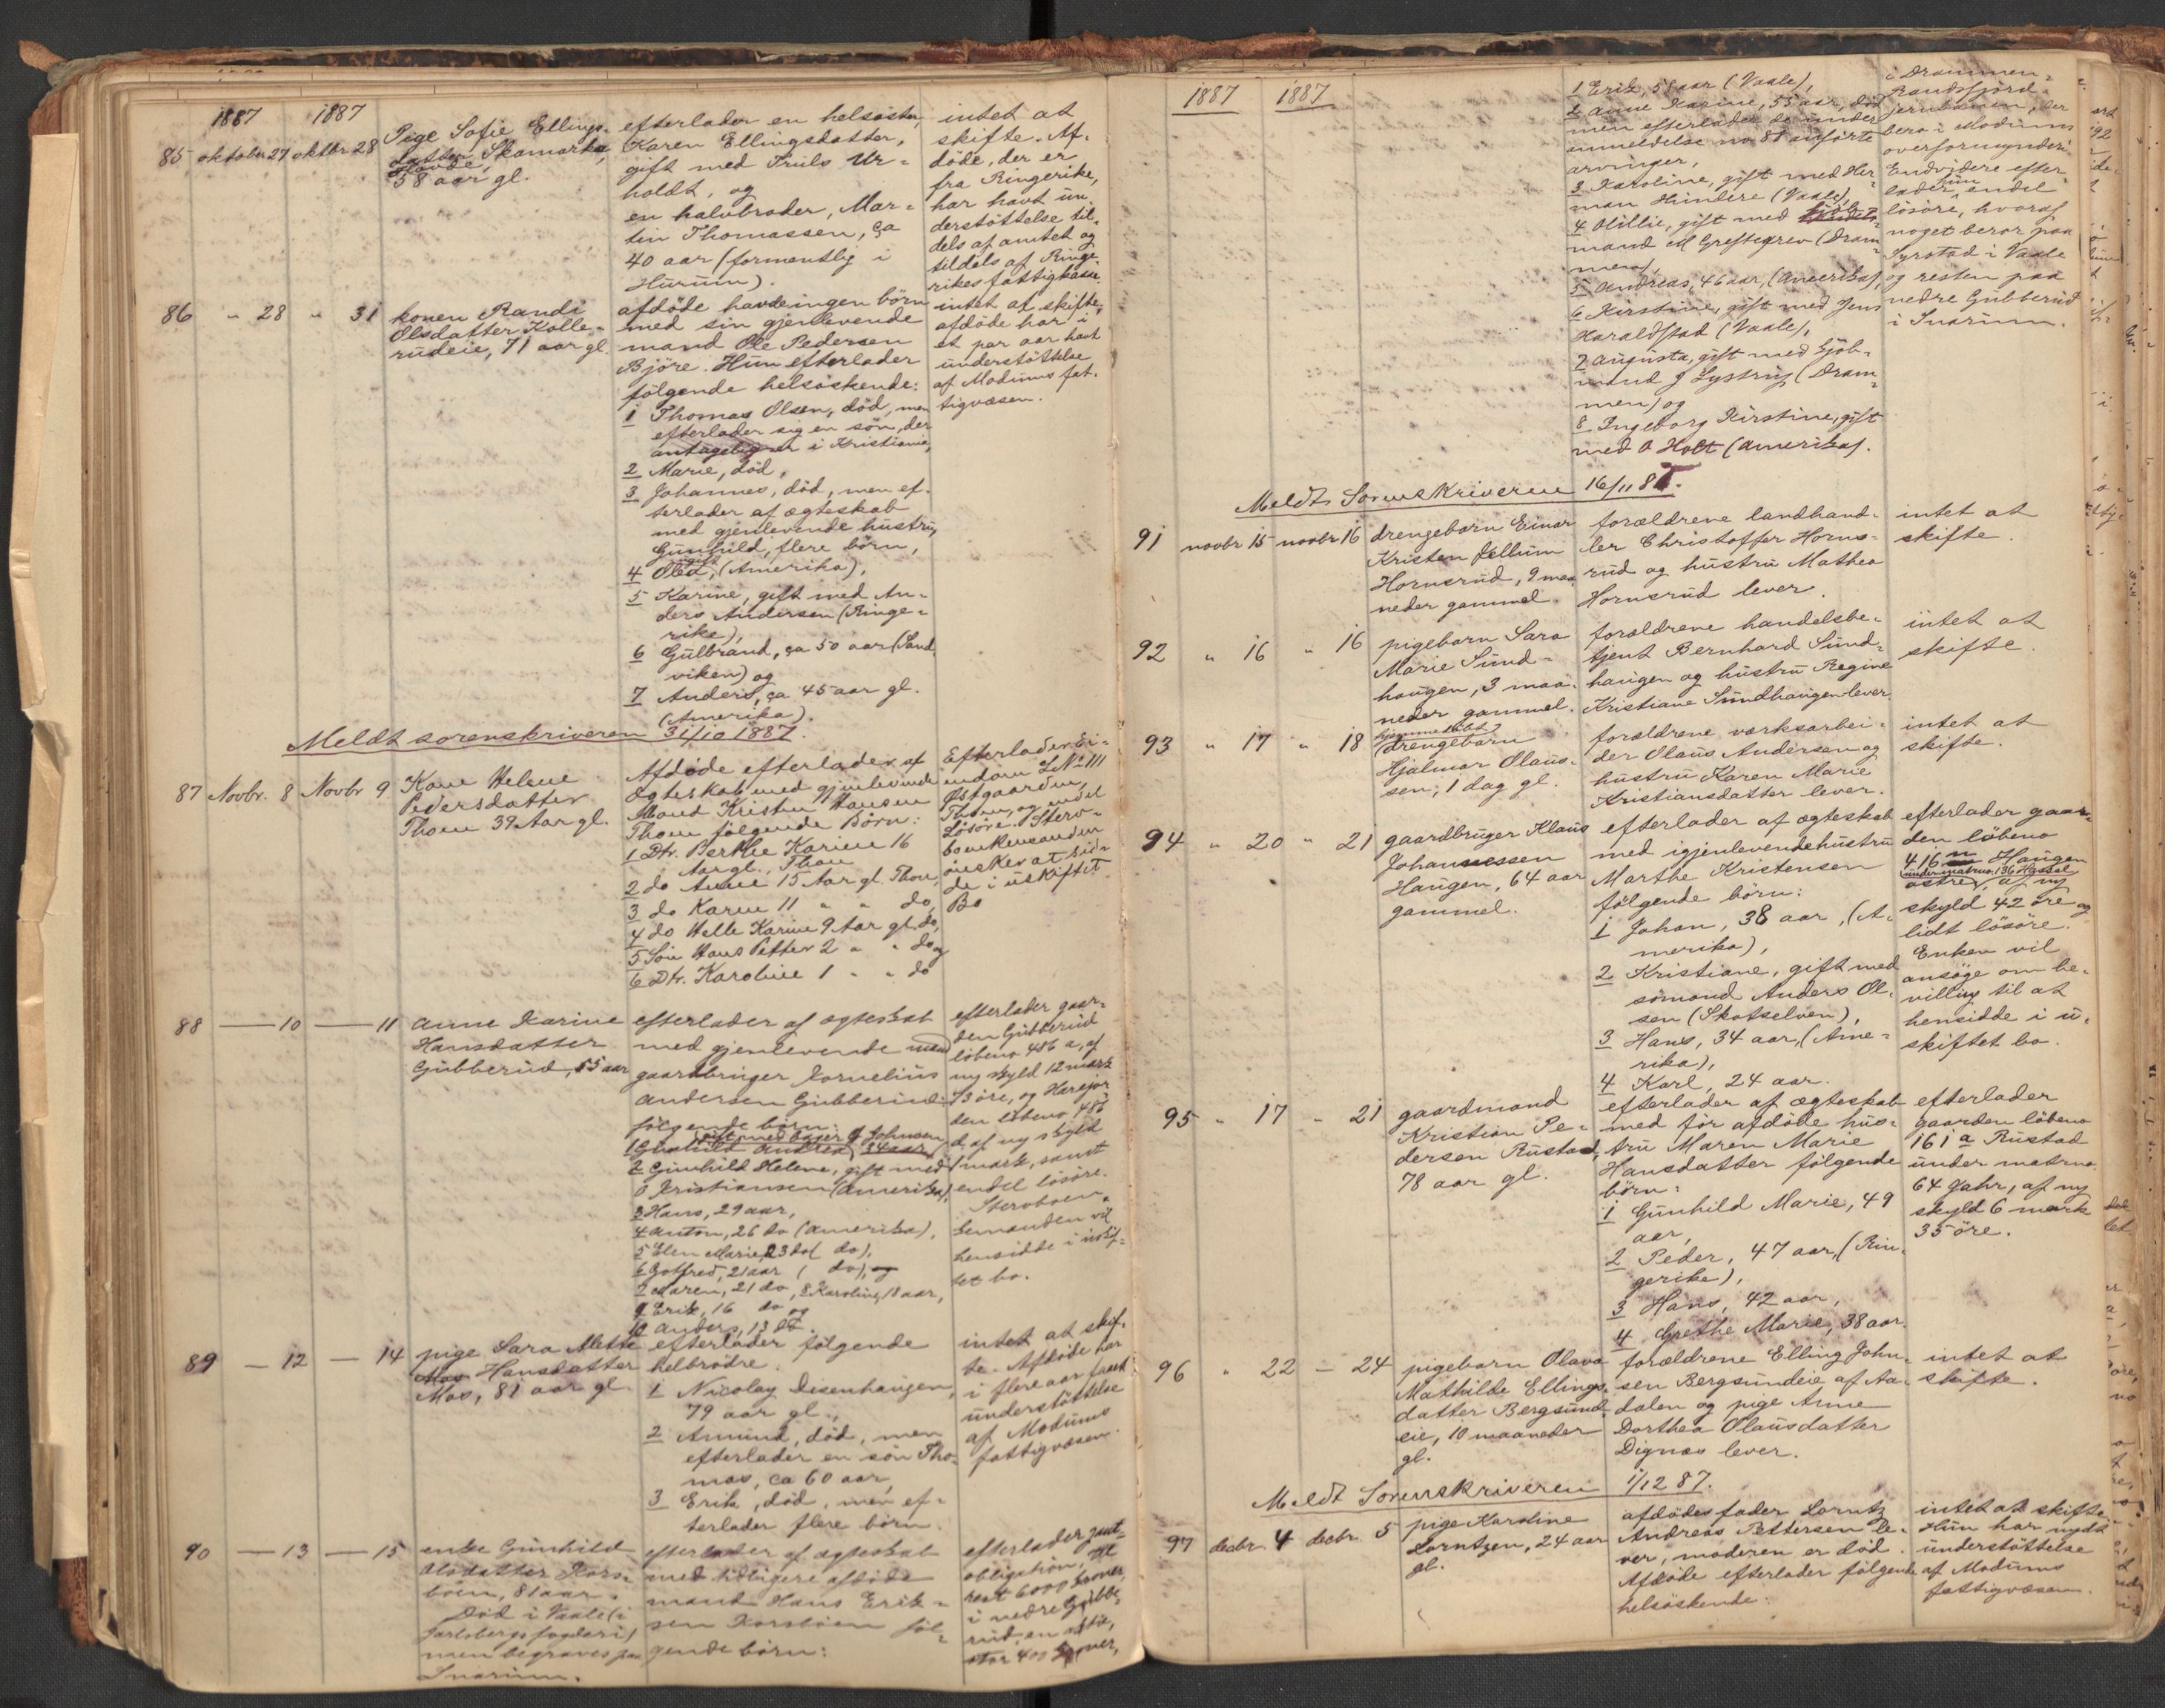 1887 1887
85 oktober 27 oktbr 28
Pige Sofie Ellings-
datter Skamarka,
58 aar gl.
efterlader en helsøster,
Karen Ellingsdatter,
gift med Truls Ur-
holdt, og
en halvbroder, Mar-
tin Thomassen, ca
40 aar (formentlig i
Hurum).
intet at
skifte. Af-
døde, der er
fra Ringerike,
har havt un
derstøttelse til-
dels af amtet og
tildels af Ringe-
rikes fattigkasse.
86 " 28 " 31
konen Randi
Olsdatter Kolle-
rudeie, 71 aar gl.
afdøde havde ingen børn
med sin gjenlevende
mand Ole Pedersen
Bjøre. Hun efterlader
følgende helsøskende:
1 Thomas Olsen, død, men
efterlader sig en søn, der
antagelig er i Kristiania,
2 Marie, død,
3 Johannes, død, men ef-
terlader af ægteskab
med gjenlevende hustru,
Gunhild, flere børn,
4 Oled, (Amerika),
5 Karine, gift med An-
ders Andersen (Ringe-
rike),
6 Gulbrand, ca 50 aar (Sand-
viken) og
7 Anders, ca 45 aar gl.
(Amerika).
intet at skifte,
afdøde har i
et par aar havt
understøttelse
af Modums fat-
tigvæsen.
Meldt sorenskriveren 31/10 1887.
87 Novbr. 8 Novbr 9
Kone Helene
Pedersdatter
Thoen 39 Aar gl.
Afdøde efterlader af
Ægteskab med gjenlevende
Mand Kristen Hansen
Thoen følgende Børn:
1 Dtr. Berthe Karine 16
Aar gl., Thoen
2 do Anne 15 Aar gl. Thoen,
3 do Karen 11 " " do,
4 do Helle Karine 9 Aar gl. do,
5 Søn Hans Petter 2 " " do og
6 Dtr. Karoline 1 " " do
Efterlader Ei-
endom LNo 111
Østgaarden,
Thoen, og endel
Løsøre. Sterv-
boenkemanden
ønsker at sid-
de i uskiftet
Bo
88 — 10 — 11
Anne Karine
Hansdatter
Gubberud, 55 aar
efterlader af ægteskab
med gjenlevende mand
gaardbruger Kornelius
Andersen Gubberud
følgende børn:
1 Gunhild Andrea, 34 aar
2 Gunhild Helene, gift med
O Kristiansen (Amerika),
3 Hans, 29 aar,
4 Anton, 26 do (Amerika),
5 Elen Marie, 23 do ( do),
6 Gotfred, 21 aar ( do), og
7 Maren, 21 do, 8 Karoline, 18 aar,
9 Erik, 16 do og
10 Anders, 13 do.
efterlader gaar-
den Gubberud
løbeno 486 a, af
ny skyld 12 mark
73 øre, og Haregjor
den løbeno 486
d, af ny skyld
1 mark, samt
endel løsøre.
Stervboen-
kemanden vil
hensidde i uskif-
tet bo.
89 — 12 — 14
pige Sara Mette
Hansdatter
Mos, 81 aar gl.
efterlader følgende
helbrødre.
1 Nicolay Disenhaugen,
79 aar gl.,
2 Amund, død, men
efterlader en søn Tho-
mas, ca 60 aar,
3 Erik, død, men ef-
terlader flere børn.
intet at skif-
te. Afdøde har
i flere aar faaet
understøttelse
af Modums
fattigvæsen.
90 — 13 — 15
enke Gunhild
Olsdatter Kors-
bøen, 81 aar.
Død i Vaale (i
Jarlsbergs fogderi)
men begraves paa
Snarum.
efterlader af ægteskab
med tidligere afdøde
mand Hans Erik-
sen Korsbøen føl-
gende børn:
efterlader pant-
obligation,
rest 6000 kroner,
i nedre Gubbe-
rud, en aktie,
stor 400 kroner,
1887 1887
1 Erik, 58 aar (Vaale),
2 Anne Karine, 55 aar, død
men efterlader de under
anmeldelse no 88 anførte
arvinger,
3 Karoline, gift med Her-
man Hundere (Vaale),
4 Millie, gift med
mand M Greftegrev (Dram-
men),
5 Andreas, 46 aar, (Amerika),
6 Kirstine, gift med Jens
Haraldstad (Vaale),
7 Augusta, gift med Kjøb-
mand J Lystrup (Dram-
men) og
8 Ingeborg Kirstine, gift
med A Holt (Amerika).
i Drammen-
Randsfjord-
jernbanen, der
bero i Modums
overformynderi.
Endvidere efter-
lader hun endel
løsøre, hvoraf
noget beror paa
Syrstad i Vaale
og resten paa
nedre Gubberud
i Snarum.
Meldt Sorenskriveren 16/11 87.
91 novbr 15 novbr 16
drengebarn Einar
Kristen Jellum
Hornsrud, 9 maa
neder gammel.
forældrene landhand-
ler Christoffer Horns-
rud og hustru Mathea
Hornsrud lever.
intet at
skifte.
92 " 16 " 16
pigebarn Sara
Marie Sund-
haugen, 3 maa-
neder gammel.
forældrene handelsbe-
tjent Bernhard Sund-
haugen og hustru Regine
Kristiane Sundhaugen lever
intet at
skifte.
93 " 17 " 18
(hjemmedøbt)
drengebarn
Hjalmar Olaus-
sen, 1 dag gl.
forældrene værksarbei-
der Olaus Andersen og
hustru Karen Marie
Kristiansdatter lever.
intet at
skifte.
94 " 20 " 21
gaardbruger Klaus
Johannessen
Haugen, 64 aar
gammel.
efterlader af ægteskab
med igjenlevende hustru
Marthe Kristensen
følgende børn:
1 Johan, 38 aar, (A-
merika),
2 Kristiane, gift med
sømand Anders Ol-
sen (Skotselven),
3 Hans, 34 aar, (Ame-
rika),
4 Karl, 24 aar.
efterlader gaar-
den løbeno
416 Haugen
under matrno. 136 Hassel
østre, af ny
skyld 42 øre og
lidt løsøre.
Enken vil
ansøge om be-
villing til at
hensidde i u-
skiftet bo.
95 " 17 " 21
gaardmand
Kristian Pe-
dersen Rustad,
78 aar gl.
efterlader af ægteskab
med før afdøde hus-
tru Maren Marie
Hansdatter følgende
børn:
1 Gunhild Marie, 49
aar,
2 Peder, 47 aar, (Rin-
gerike),
3 Hans, 42 aar,
4 Grethe Marie, 38 aar.
efterlader
gaarden løbeno
161 a Rustad
under matrno.
64 Gahr, af ny
skyld 6 mark
35 øre.
96 " 22 — 24
pigebarn Olava
Mathilde Ellings-
datter Bergsund-
eie, 10 maaneder
gl.
forældrene Elling John-
sen Bergsundeie af Aa-
dalen og pige Anne
Dorthea Olausdatter
Dignæs lever.
intet at
skifte.
Meldt Sorenskriveren 1/12 87.
97 decbr. 4 decbr. 5
pige Karoline
Lorntzen, 24 aar
gl.
afdødes fader Lorntz
Andreas Pettersen le-
ver, moderen er død.
Afdøde efterlader følgende
helsøskende:
intet at skifte.
Hun har nydt
understøttelse
af Modums
fattigvæsen.